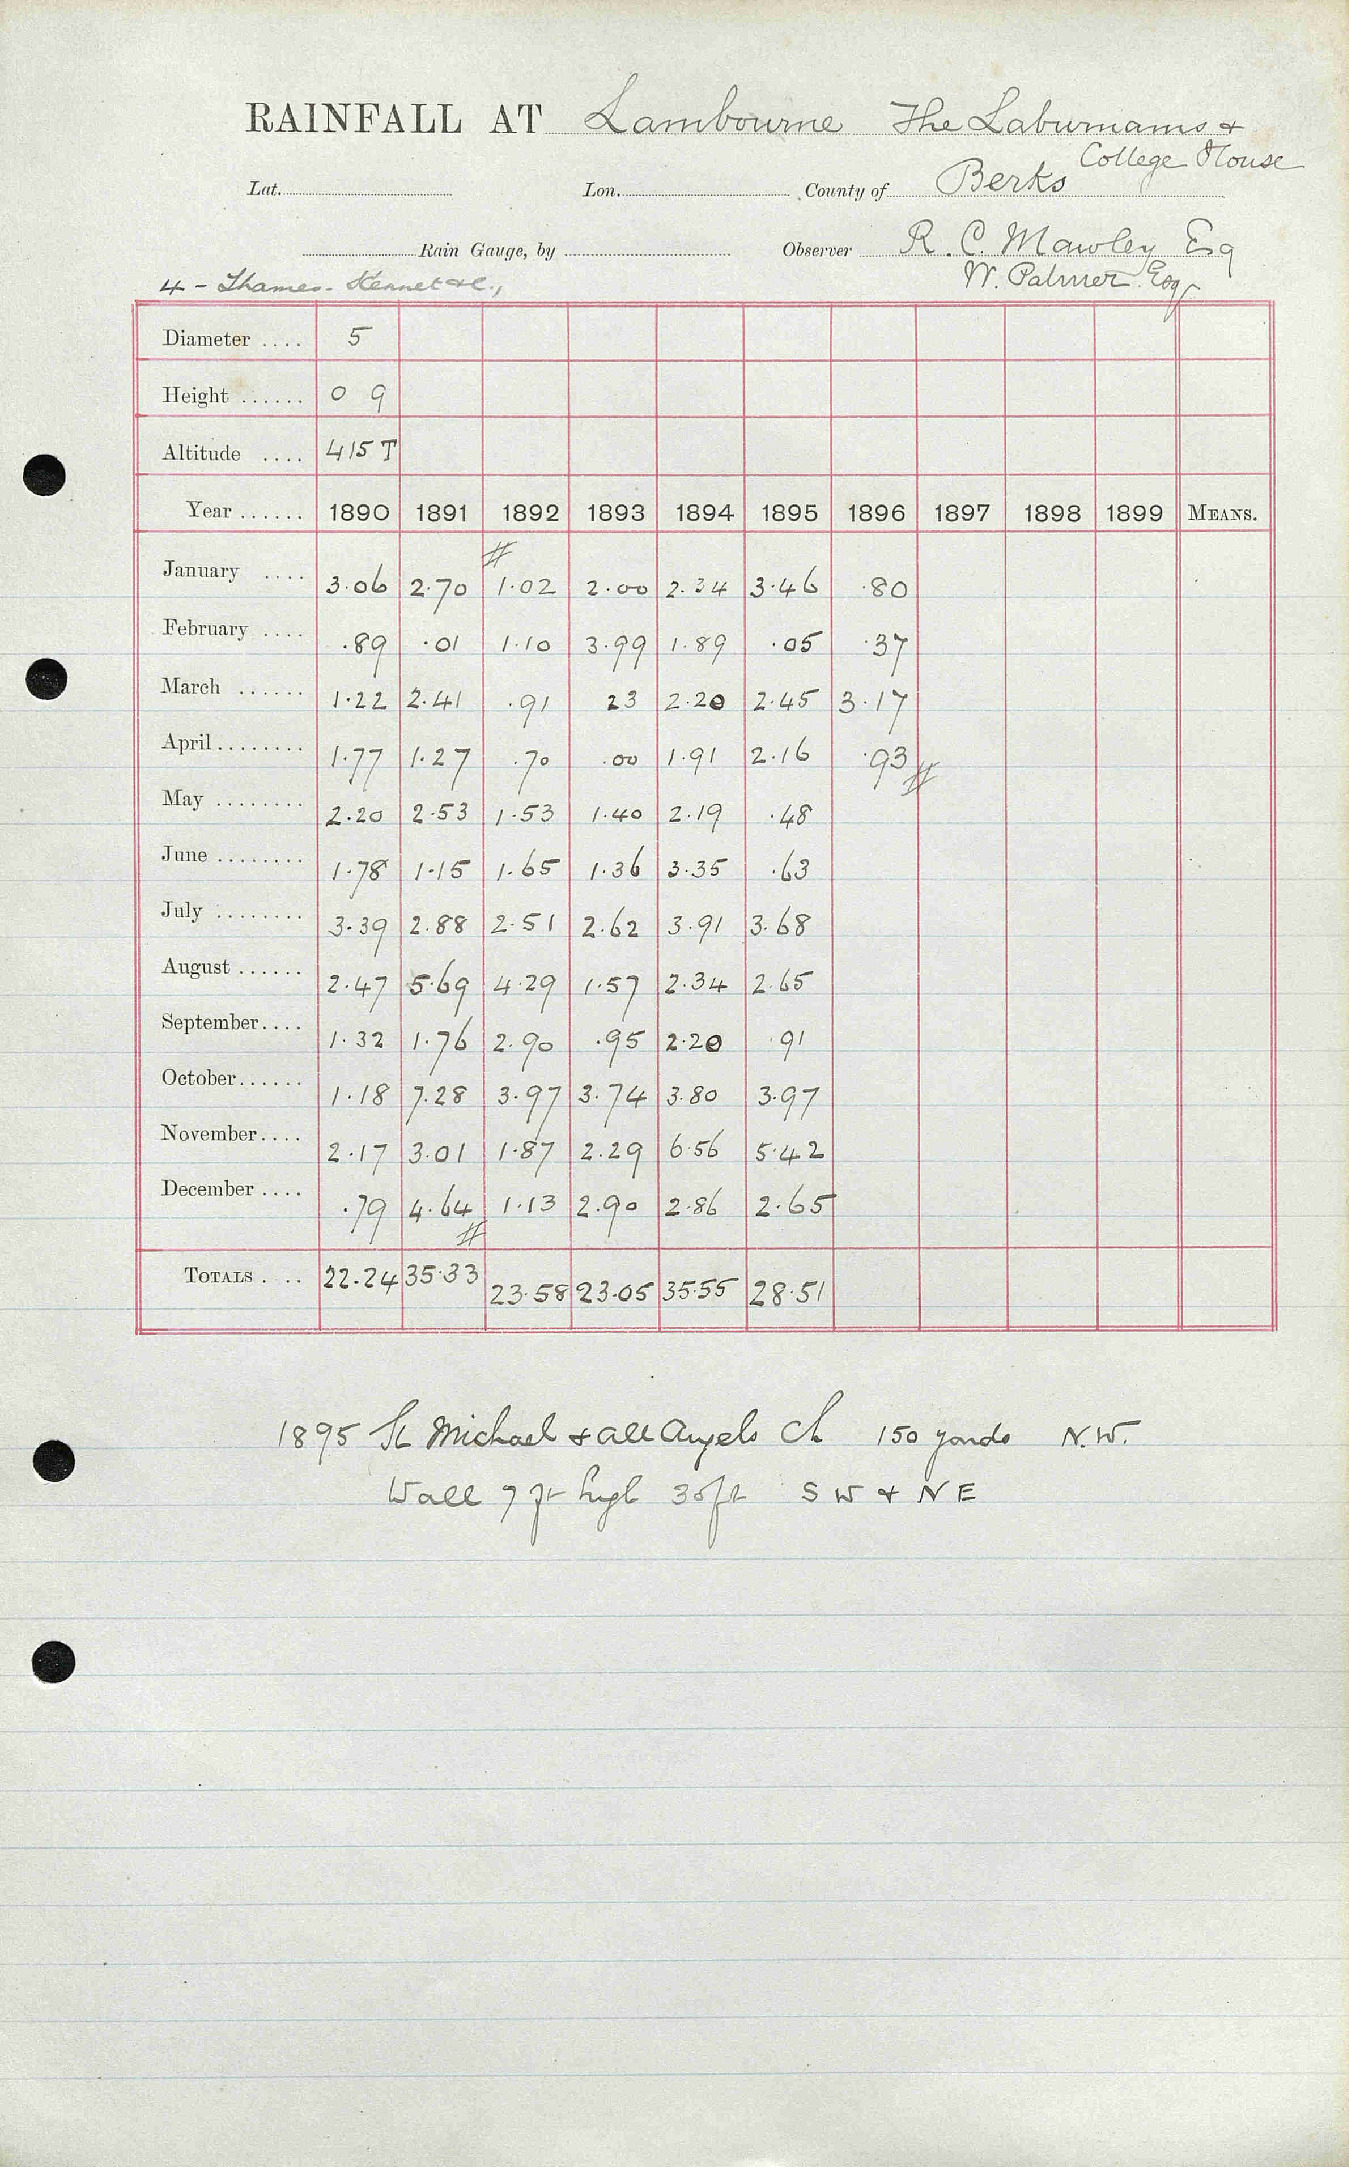 RAINFALL AT Lambourne The Laburnams &
College House
Lat. Lon. County of Berks
Rain Gauge, by Observer R. C. Mawley Esq
4 - Thames. Kennet &c., W. Palmer Esq
Diameter .... 5
Height ...... 0 9
Altitude .... 415 T
Year ...... 1890 1891 1892 1893 1894 1895 1896 1897 1898 1899 MEANS.
January .... 3.06 2.70 # 1.02 2.00 2.34 3.46 .80
February .... .89 .01 1.10 3.99 1.89 .05 .37
March ...... 1.22 2.41 .91 23 2.20 2.45 3.17
April ........ 1.77 1.27 .70 .00 1.91 2.16 .93 #
May ........ 2.20 2.53 1.53 1.40 2.19 .48
June ........ 1.78 1.15 1.65 1.36 3.35 .63
July ........ 3.39 2.88 2.51 2.62 3.91 3.68
August ...... 2.47 5.69 4.29 1.57 2.34 2.65
September.... 1.32 1.76 2.90 .95 2.20 .91
October...... 1.18 7.28 3.97 3.74 3.80 3.97
November.... 2.17 3.01 1.87 2.29 6.56 5.42
December .... .79 4.64 # 1.13 2.90 2.86 2.65
TOTALS . .. 22.24 35.33 23.58 23.05 35.55 28.51
1895 St Michael & all Angels Ch 150 yards N.W.
Wall 7 ft high 30ft SW & NE